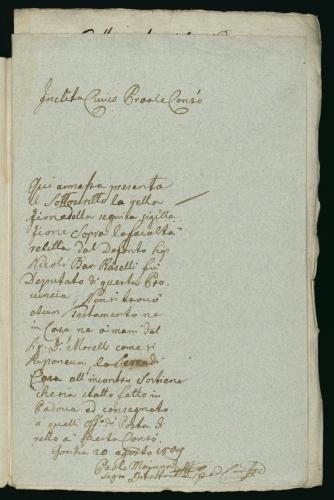 Inclito Civico Prov.le Cons.o
Qui annessa presenta
il Sottoscritto la rella
tione della seguita sigilla
tione sopra la facoltà
relitta dal Defonto Sig.
Nicolò Bar. Raselli fu
Deputato di questa Pro
vincia. Non si trovò
alcun Testamento ne
in Casa ne ai mani del
Sig. D.r Morelli come si
supponeva, la Serva di
Casa all'incontro sostiene
che sia stato fatto in
Padova ed consegnato
a quell off.o di Posta di
retto a questo Cons.o
Gorizia 20 agosto 1809
Paolo